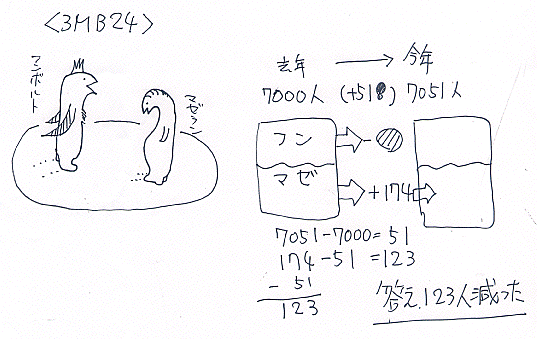 <3MB24>
フンボルト
マゼラン
去年 → 今年
7000人 (+51) 7051人
フン
-
マゼ
+174
7051-7000=51
174-51=123
- 51
123
答え.123人減った